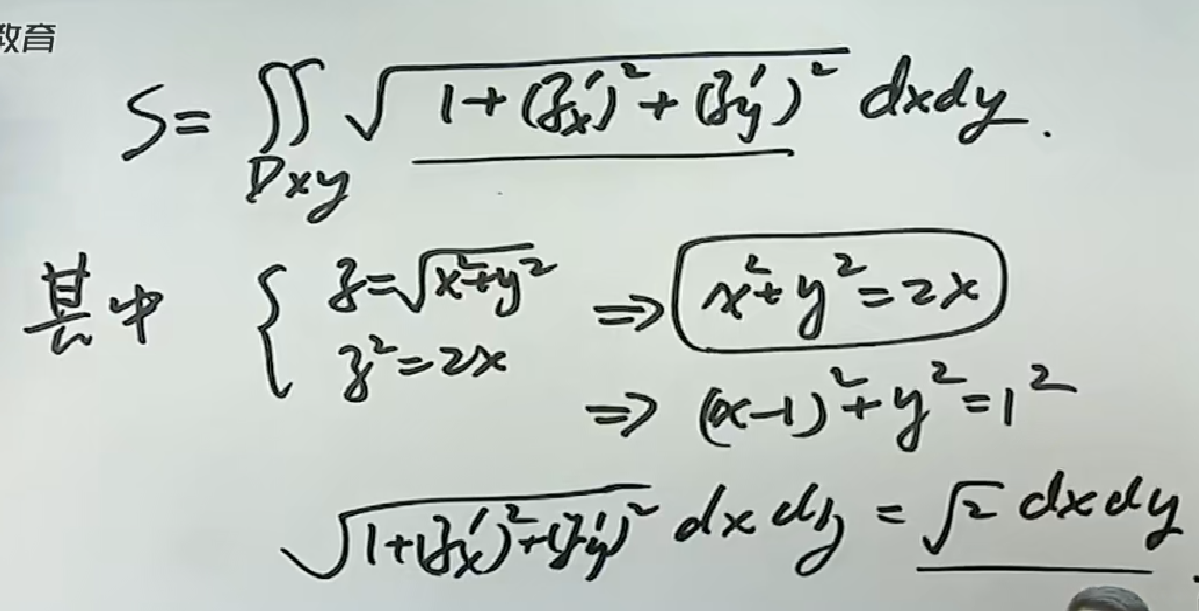 教育
S = ∬ √(1+(z'x)²+(z'y)²) dxdy.
Dxy
其中 { z=√(x²+y²) ⇒ x²+y²=2x
z²=2x ⇒ (x-1)²+y²=1²
√(1+(z'x)²+(z'y)²) dxdy = √2 dxdy.